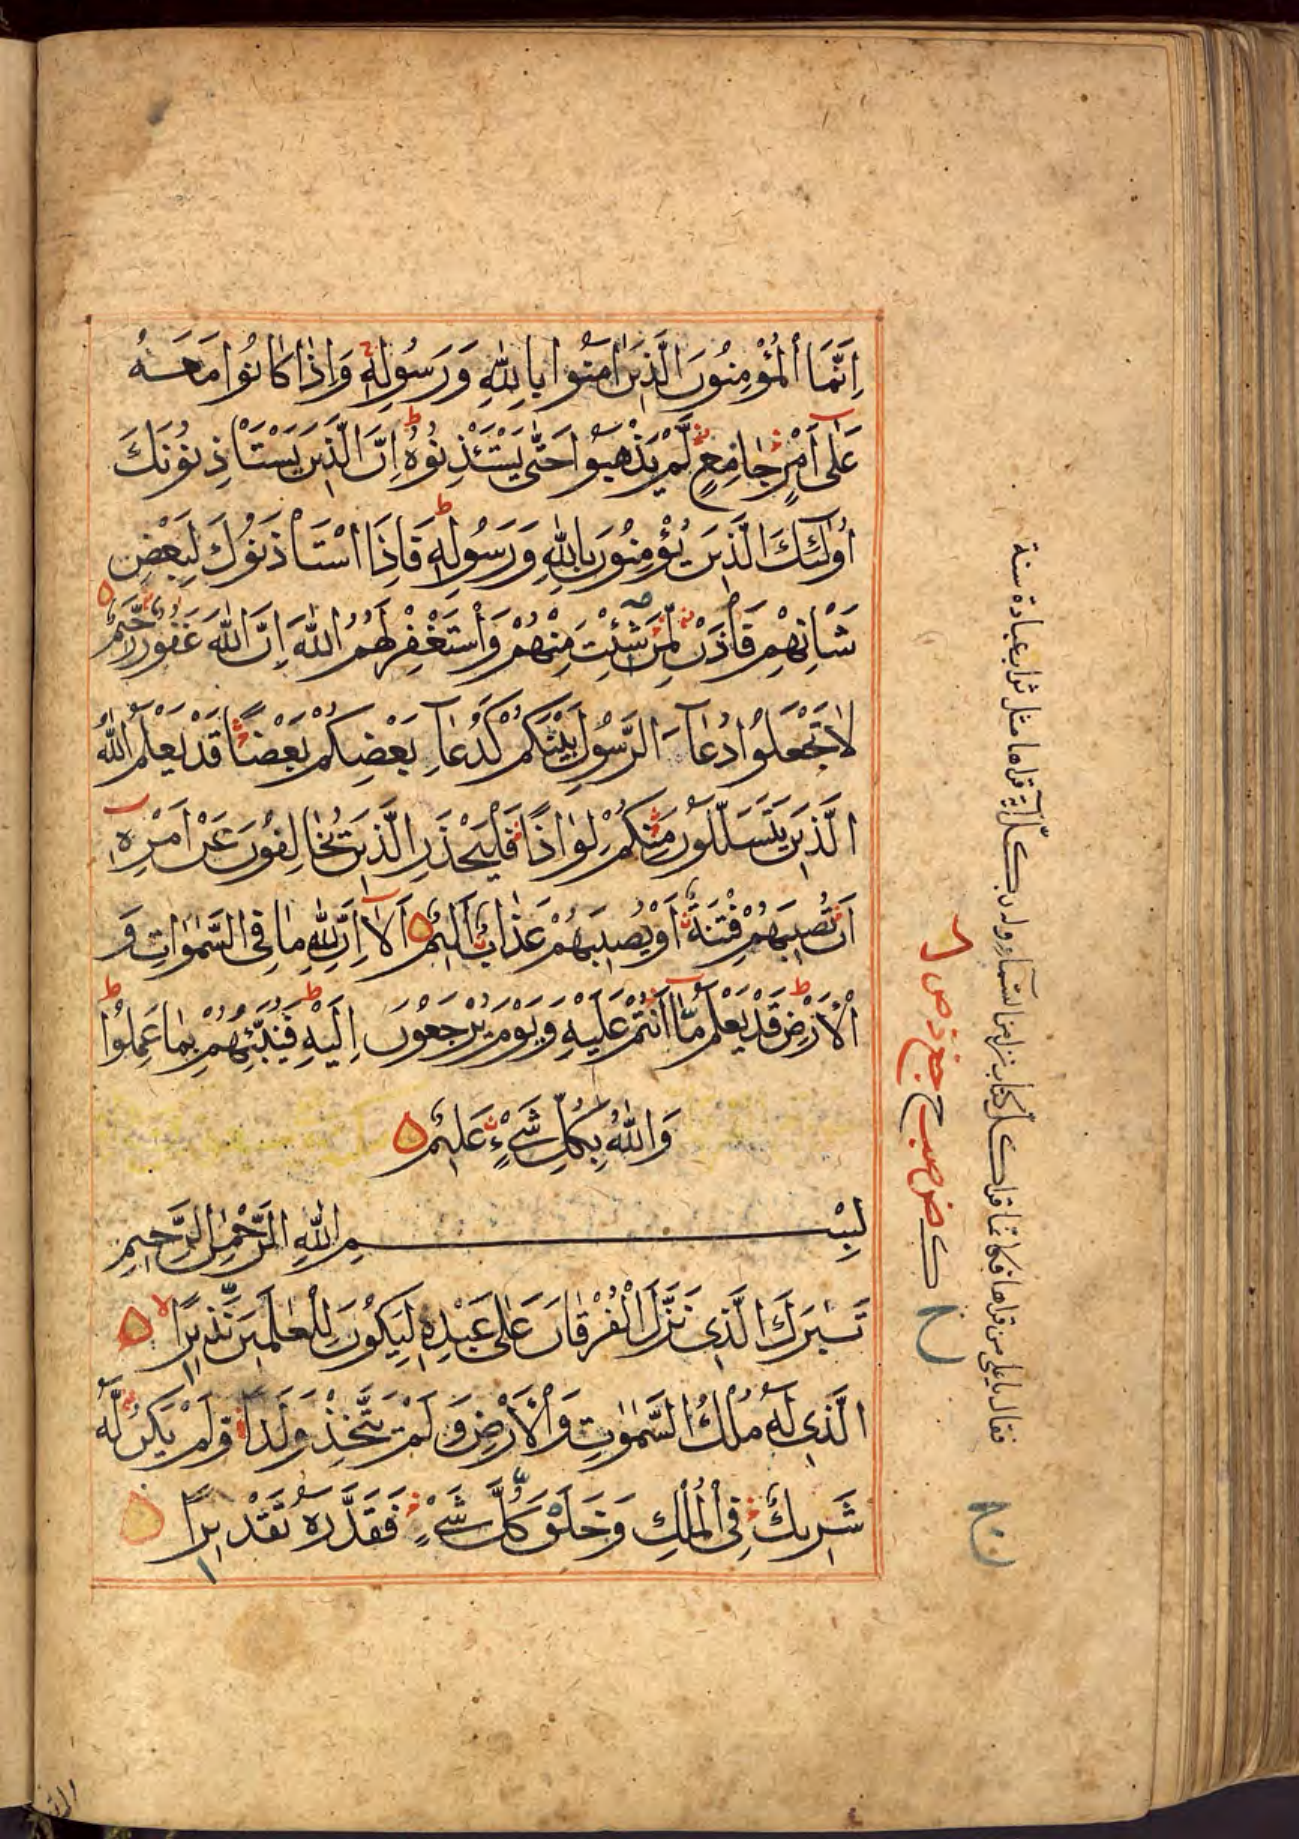 اِنَّمَا الْمُؤْمِنُونَ الَّذِينَ اٰمَنُوا بِاللّٰهِ وَرَسُولِهٖ وَاِذَا كَانُوا مَعَهُ
عَلٰى اَمْرٍ جَامِعٍ لَمْ يَذْهَبُوا حَتّٰى يَسْتَئْذِنُوهُ اِنَّ الَّذِينَ يَسْتَاْذِنُونَكَ
اُولٰئِكَ الَّذِينَ يُؤْمِنُونَ بِاللّٰهِ وَرَسُولِهٖ فَاِذَا اسْتَاْذَنُوكَ لِبَعْضِ
شَاْنِهِمْ فَاْذَنْ لِمَنْ شِئْتَ مِنْهُمْ وَاسْتَغْفِرْ لَهُمُ اللّٰهَ اِنَّ اللّٰهَ غَفُورٌ رَحِيمٌ
لَا تَجْعَلُوا دُعَآءَ الرَّسُولِ بَيْنَكُمْ كَدُعَآءِ بَعْضِكُمْ بَعْضًا قَدْ يَعْلَمُ اللّٰهُ
الَّذِينَ يَتَسَلَّلُونَ مِنْكُمْ لِوَاذًا فَلْيَحْذَرِ الَّذِينَ يُخَالِفُونَ عَنْ اَمْرِهٖ
اَنْ تُصِيبَهُمْ فِتْنَةٌ اَوْ يُصِيبَهُمْ عَذَابٌ اَلِيمٌ اَلَآ اِنَّ لِلّٰهِ مَا فِى السَّمٰوَاتِ وَ
الْاَرْضِ قَدْ يَعْلَمُ مَآ اَنْتُمْ عَلَيْهِ وَيَوْمَ يُرْجَعُونَ اِلَيْهِ فَيُنَبِّئُهُمْ بِمَا عَمِلُوْا
وَاللّٰهُ بِكُلِّ شَيْءٍ عَلِيمٌ
بِسْمِ اللّٰهِ الرَّحْمٰنِ الرَّحِيمِ
تَبٰرَكَ الَّذِى نَزَّلَ الْفُرْقَانَ عَلٰى عَبْدِهٖ لِيَكُونَ لِلْعٰلَمِينَ نَذِيرًا
الَّذِى لَهٗ مُلْكُ السَّمٰوٰتِ وَالْاَرْضِ وَلَمْ يَتَّخِذْ وَلَدًا وَلَمْ يَكُنْ لَهٗ
شَرِيكٌ فِى الْمُلْكِ وَخَلَقَ كُلَّ شَيْءٍ فَقَدَّرَهٗ تَقْدِيرًا
فقال يا على من قراها فكانما قرا كل كتاب نزل من السماء وله بكل آية قراها مثل ثواب عبادة سنة